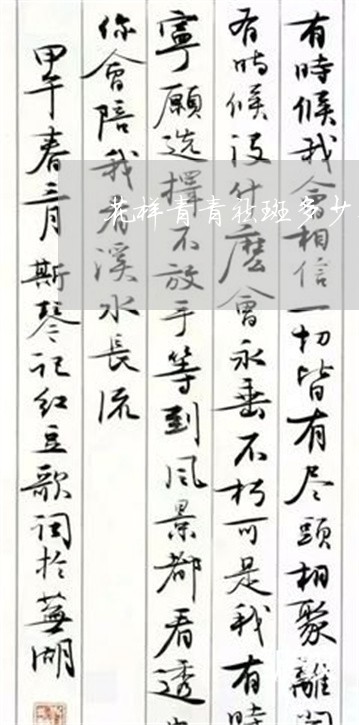 有時候我会相信一切皆有尽頭相聚離開
有時候没什麽會永垂不朽可是我有時
寧願选擇不放手等到风景都看透
你會陪我看溪水長流
甲午春三月斯琴记红豆歌词於蕪湖
花样青青祛斑多少